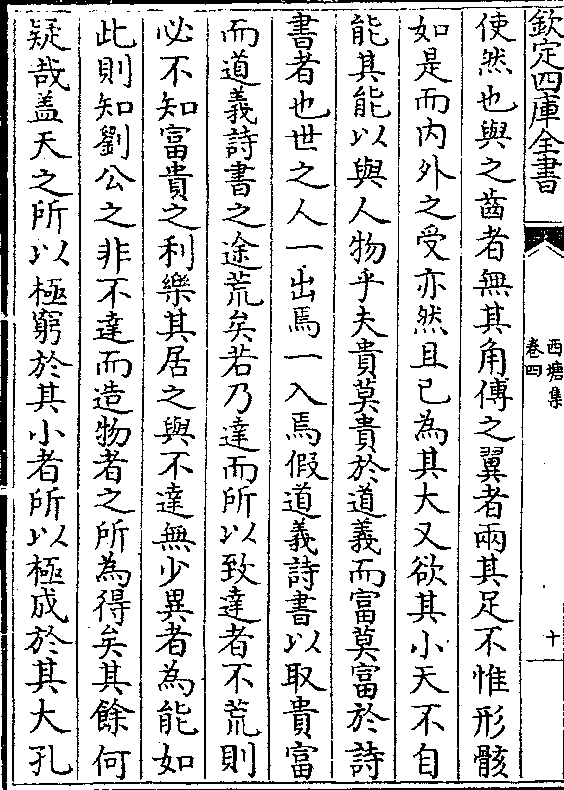 欽定四庫全書
西塘集
卷四
十
使然也與之齒者無其角傅之翼者兩其足不惟形骸
如是而内外之受亦然且已為其大又欲其小天不自
能其能以與人物乎夫貴莫貴於道義而富莫富於詩
書者也世之人一出焉一入焉假道義詩書以取貴富
而道義詩書之途荒矣若乃達而所以致達者不荒則
必不知富貴之利樂其居之與不達無少異者為能如
此則知劉公之非不達而造物者之所為得矣其餘何
疑哉盖天之所以極窮於其小者所以極成於其大孔